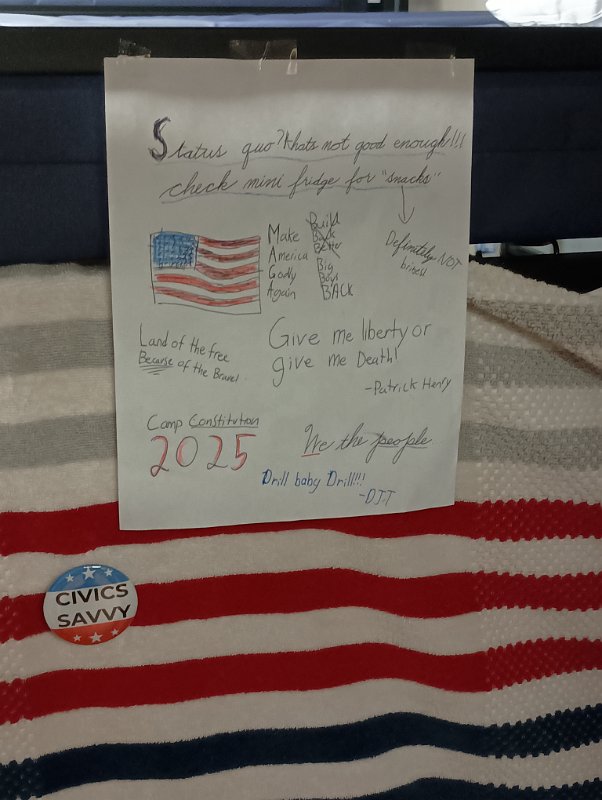 Status quo? thats not good enough!!!
check mini fridge for "snacks"
Definitely NOT
bribes!
Make
America
Godly
Again
Build
Back
Better
Big
Boys
BACK
Land of the free
Because of the Brave!
Give me liberty or
give me Death!
-Patrick Henry
Camp Constitution
2025
We the people
Drill baby Drill!!!
-DJT
CIVICS
SAVVY